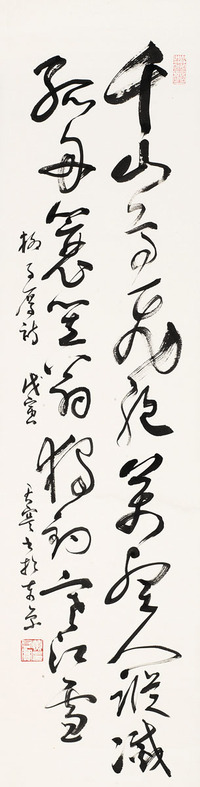 千山鳥飛絕萬徑人蹤滅
孤舟蓑笠翁獨釣寒江雪
柳子厚詩 戊寅